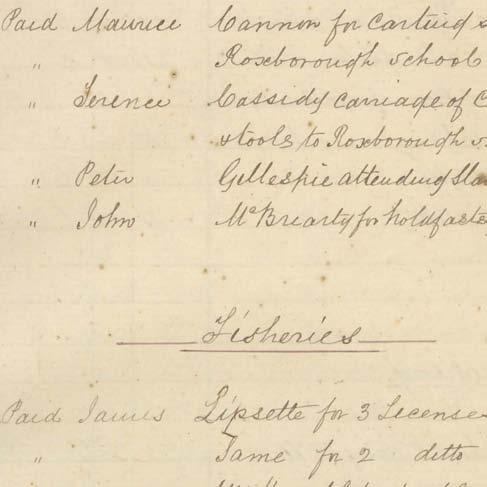 Paid Maurice Cannon for carting
" Roxborough School
" Terence Cassidy carriage of
stools to Roxborough
" Peter Gillespie attending
" John McBrearty for holdfasts
Fisheries
Paid James Lipsette for 3 Licenses
" Same for 2 ditto